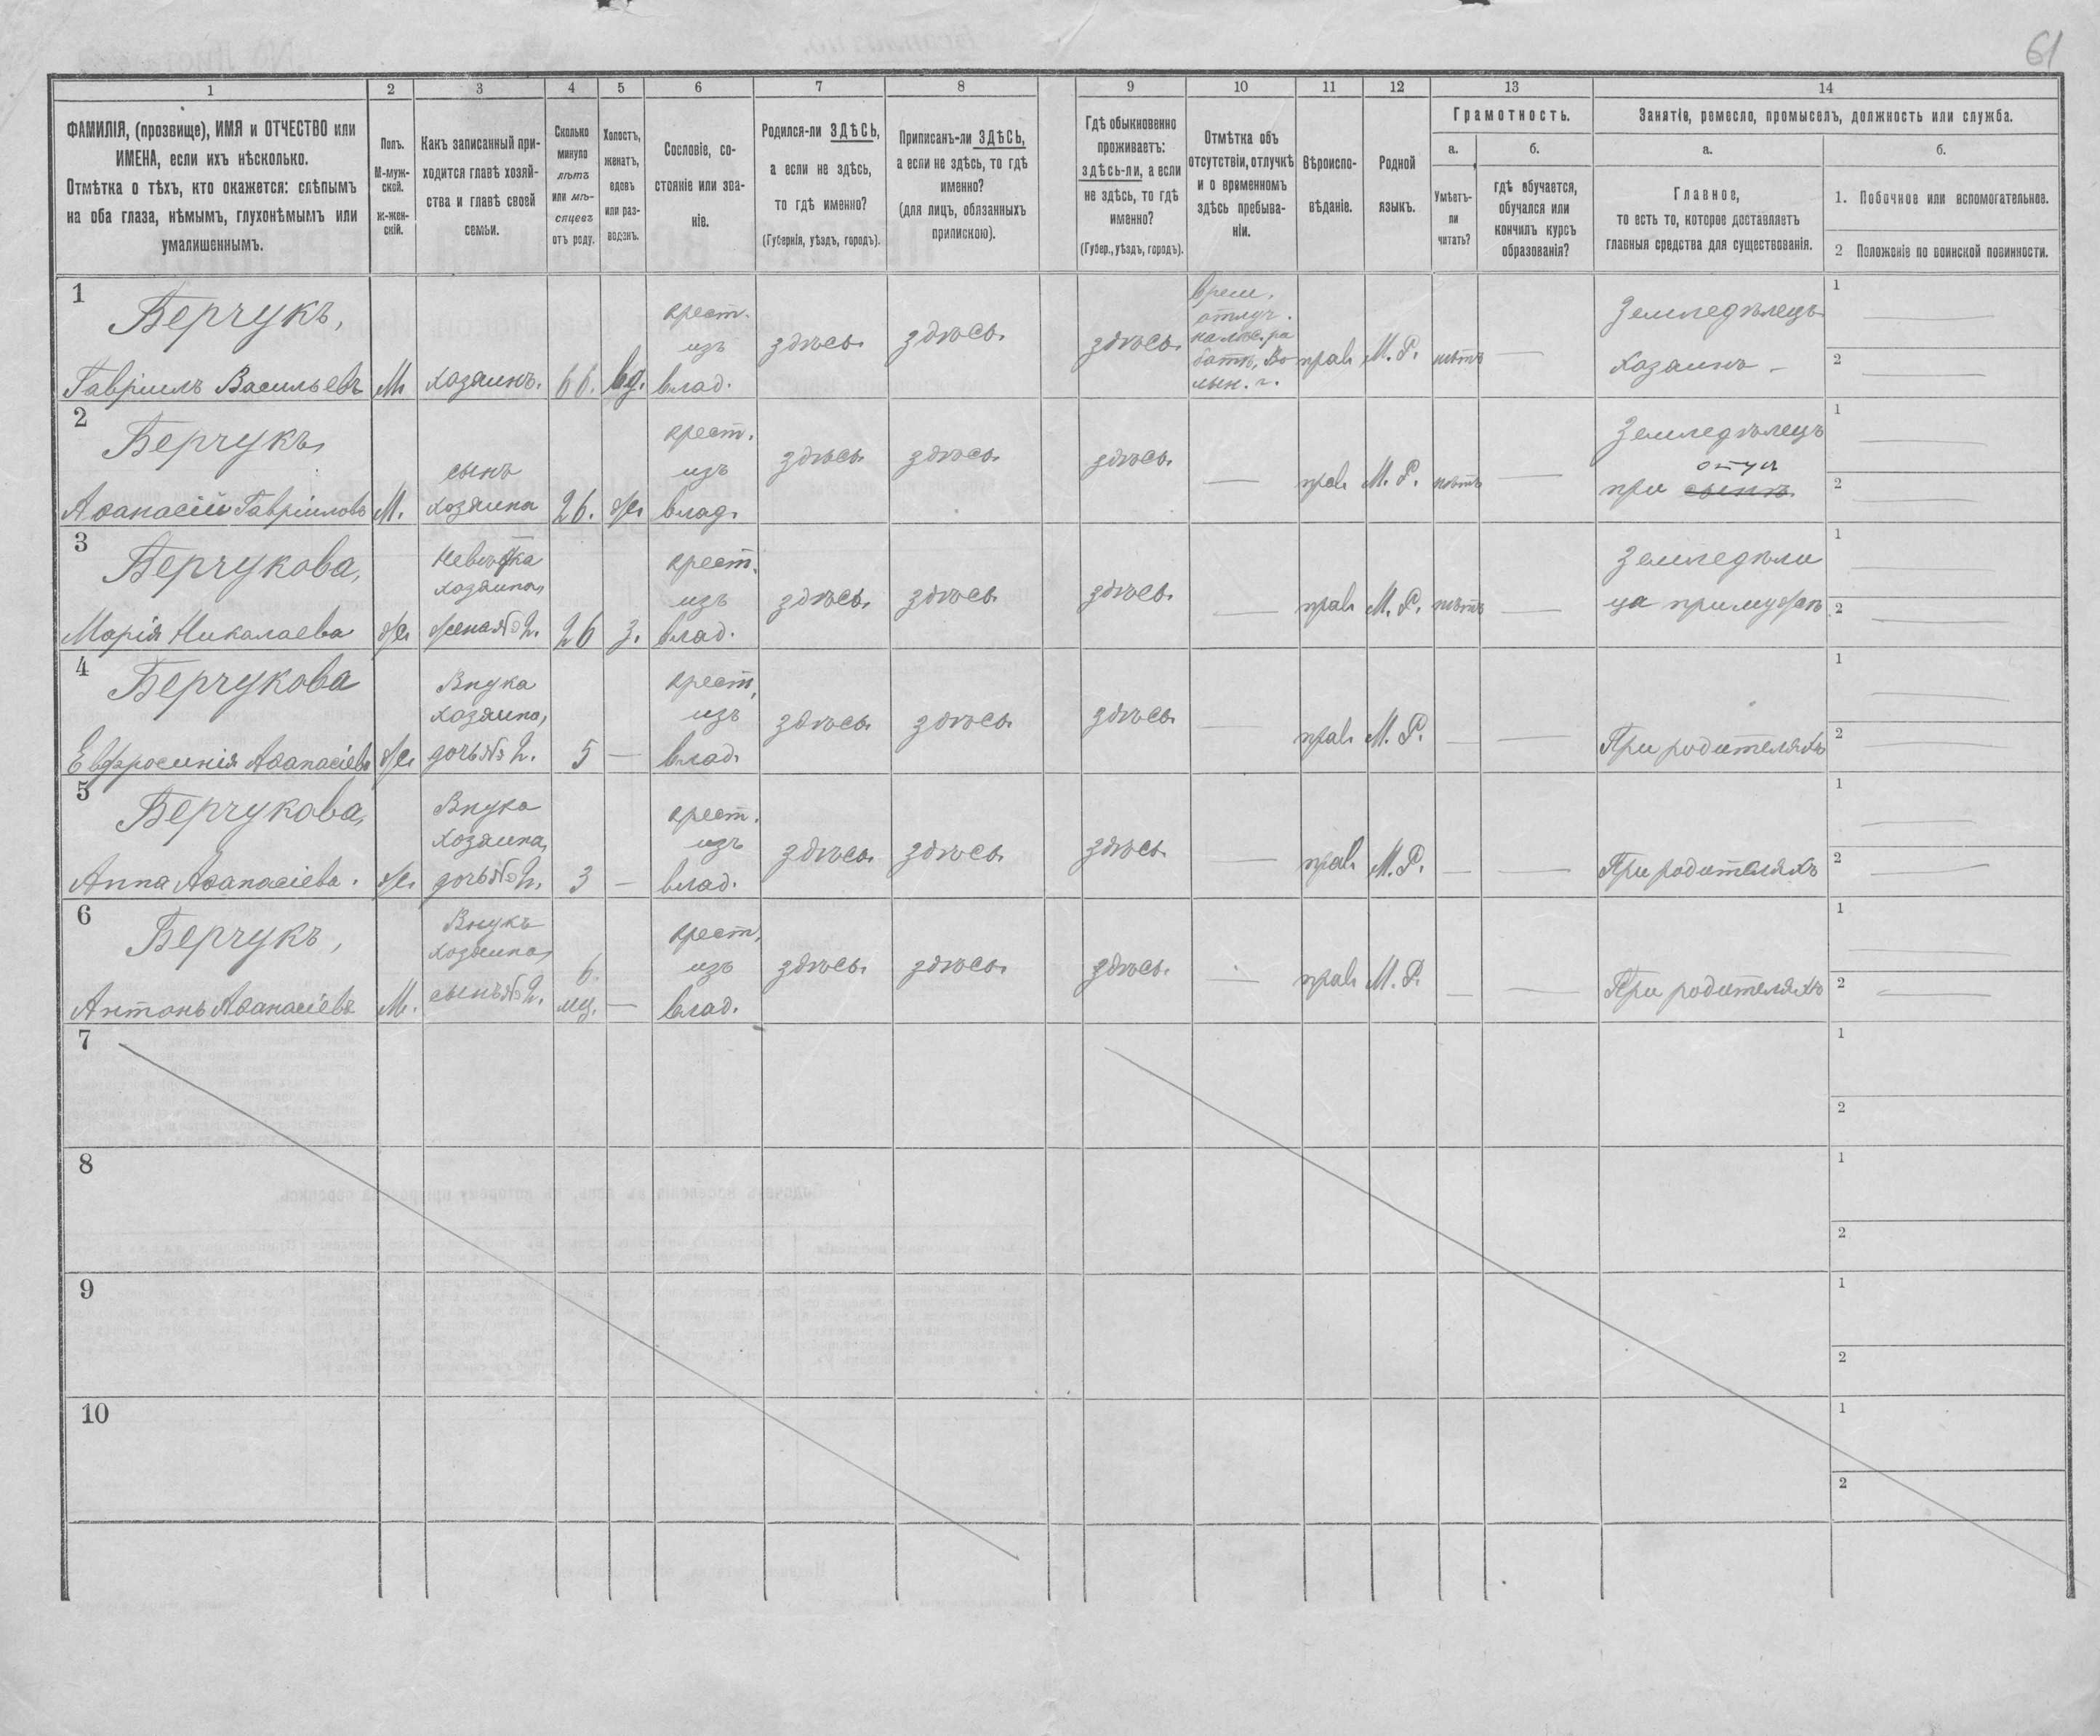 61
1 2 3 4 5 6 7 8 9 10 11 12 13 14
ФАМИЛІЯ, (прозвище), ИМЯ и ОТЧЕСТВО или
ИМЕНА, если ихъ нѣсколько.
Отмѣтка о тѣхъ, кто окажется: слѣпымъ
на оба глаза, нѣмымъ, глухонѣмымъ или
умалишеннымъ.
Полъ.
М-муж-
ской.
Ж-жен-
скій.
Какъ записанный при-
ходится главѣ хозяй-
ства и главѣ своей
семьи.
Сколько
минуло
лѣтъ
или мѣ-
сяцевъ
отъ роду.
Холостъ,
женатъ,
вдовъ
или раз-
веденъ.
Сословіе, со-
стояніе или зва-
ніе.
Родился-ли ЗДѢСЬ,
а если не здѣсь,
то гдѣ именно?
(Губернія, уѣздъ, городъ).
Приписанъ-ли ЗДѢСЬ,
а если не здѣсь, то гдѣ
именно?
(для лицъ, обязанныхъ
припискою).
Гдѣ обыкновенно
проживаетъ:
здѣсь-ли, а если
не здѣсь, то гдѣ
именно?
(Губер., уѣздъ, городъ).
Отмѣтка объ
отсутствіи, отлучкѣ
и о временномъ
здѣсь пребыва-
ніи.
Вѣроиспо-
вѣданіе.
Родной
языкъ.
Грамотность.
а.
Умѣетъ-
ли
читать?
б.
гдѣ обучается,
обучался или
кончилъ курсъ
образованія?
Занятіе, ремесло, промыселъ, должность или служба.
а.
Главное,
то есть то, которое доставляетъ
главныя средства для существованія.
б.
1. Побочное или вспомогательное.
2 Положеніе по воинской повинности.
1
Берчукъ,
Гавріилъ Васильевъ
М
хозяинъ.
66.
вд.
крест.
изъ
влад.
здѣсь.
здѣсь.
здѣсь.
врем.
отлуч.
на лѣс. ра
ботъ, Во
лын. г.
прав.
М. Р.
нѣтъ
—
Земледѣлецъ
хозяинъ –
1 —
2 —
2
Берчукъ
Аѳанасій Гавріиловъ
М.
сынъ
хозяина
26.
ж.
крест.
изъ
влад.
здѣсь.
здѣсь.
здѣсь.
—
прав.
М. Р.
нѣтъ
—
Земледѣлецъ
отцѣ
при сынъ
1 —
2 —
3
Берчукова,
Марія Николаева
ж.
Невѣстка
хозяина,
жена № 2.
26
з.
крест.
изъ
влад.
здѣсь.
здѣсь.
здѣсь.
—
прав.
М. Р.
нѣтъ
—
Земледѣли
ца при мужѣ
1 —
2 —
4
Берчукова
Евфросинія Аѳанасіева
ж.
Внука
хозяина,
дочь № 2.
5
—
крест.
изъ
влад.
здѣсь.
здѣсь.
здѣсь.
—
прав.
М. Р.
—
—
При родителяхъ
1 —
2 —
5
Берчукова,
Анна Аѳанасіева.
ж.
Внука
хозяина,
дочь № 2.
3
—
крест.
изъ
влад.
здѣсь.
здѣсь.
здѣсь.
—
прав.
М. Р.
—
—
При родителяхъ
1 —
2 —
6
Берчукъ,
Антонъ Аѳанасіевъ
М.
Внукъ
хозяина,
сынъ № 2.
6.
мц.
—
крест.
изъ
влад.
здѣсь.
здѣсь.
здѣсь.
—
прав.
М. Р.
—
—
При родителяхъ
1 —
2 —
7
1
2
8
1
2
9
1
2
10
1
2